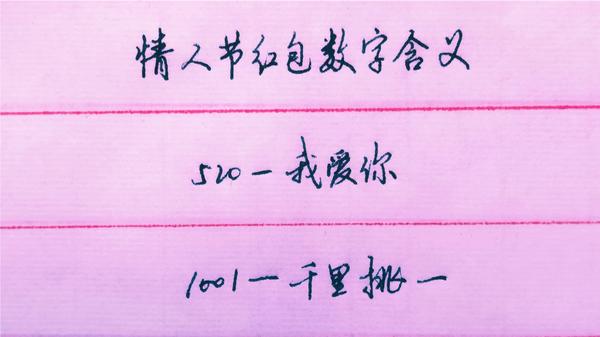 情人节红包数字含义
520一我爱你
1001一千里挑一